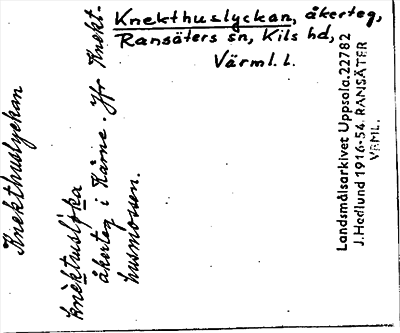 Knekthuslyckan, åkerteg,
Ransäters sn, Kils hd,
Värml. l.
Knekthuslyckan
knèktusljka
åkerteg i Kärne. Jfr Knekt-
husmossen.
Landsmålsarkivet Uppsala. 22782
J. Hedlund 1916-54. RANSÄTER
VRML.